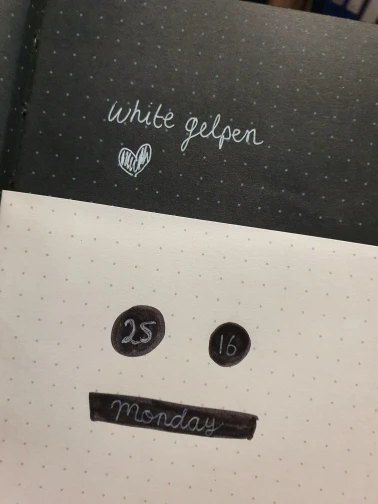 white gelpen
25 16
Monday